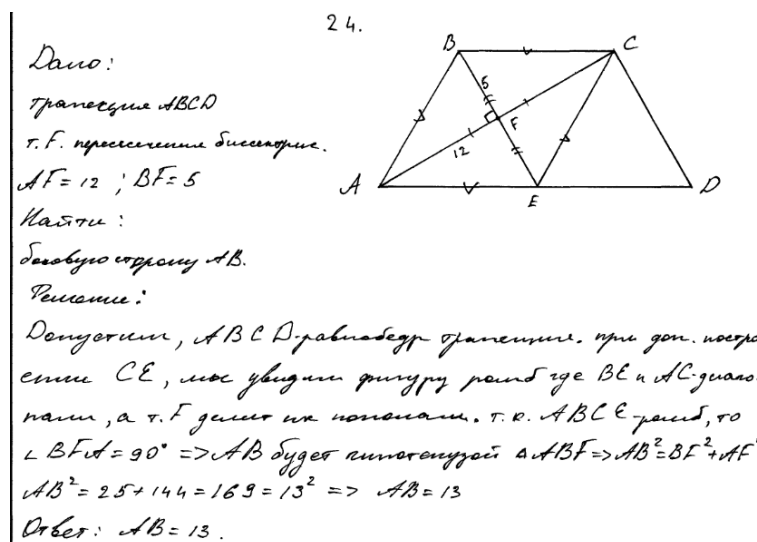 24.
Дано:
трапеция ABCD
т. F. пересечения биссектрис.
AF = 12 ; BF = 5
Найти:
боковую сторону AB.
Решение:
Допустим, ABCD-равнобедр трапеция. при доп. постро
ении CE, мы увидим фигуру ромб где BE и AC-диаго
нали, а т. F делит их пополам. т.к. ABCE-ромб, то
∠BFA = 90° => AB будет гипотенузой △ABF => AB² = BF² + AF²
AB² = 25 + 144 = 169 = 13² => AB = 13
Ответ: AB = 13.
B
C
5
F
12
A
E
D